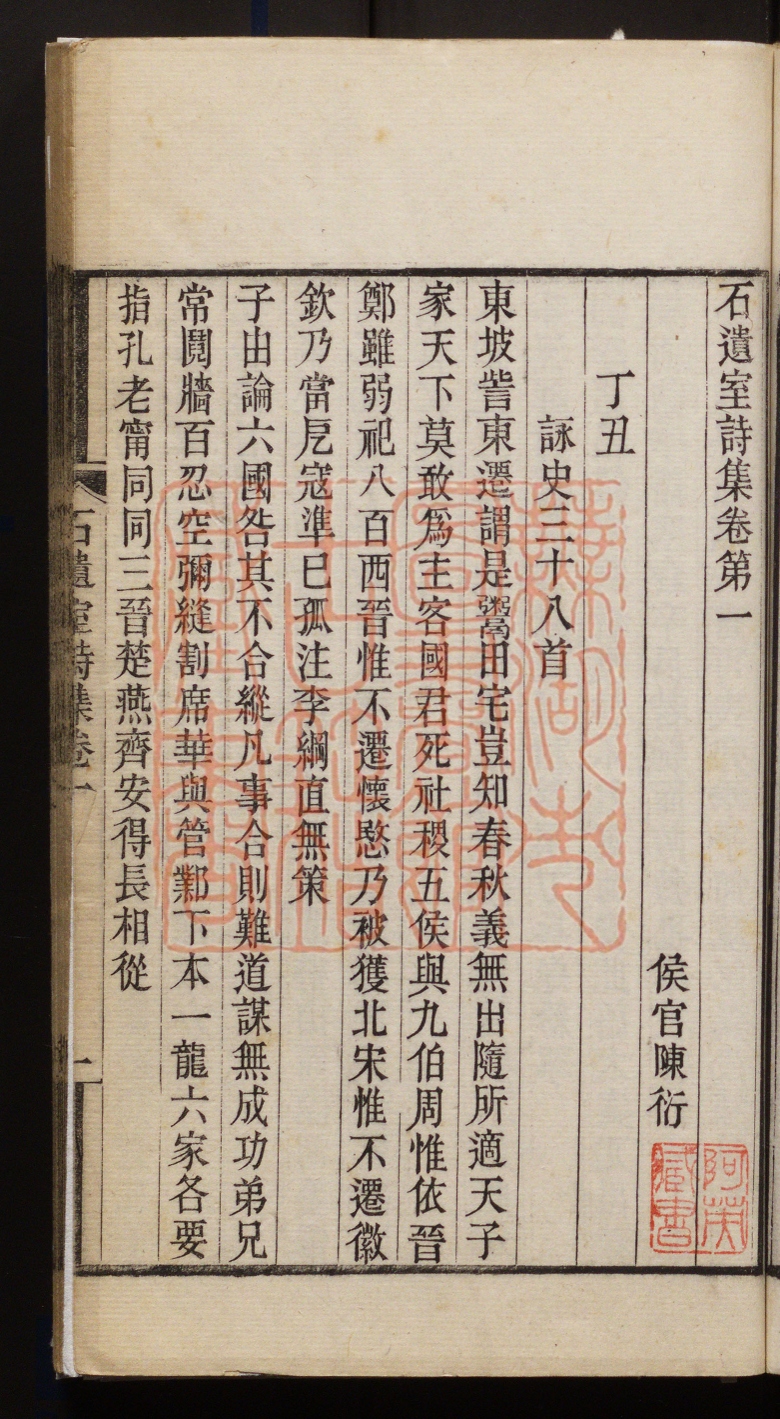 石遺室詩集卷第一
侯官陳衍
丁丑
詠史三十八首
東坡訾東遷謂是鬻田宅豈知春秋義無出隨所適天子
家天下莫敢爲主客國君死社稷五侯與九伯周惟依晉
鄭雖弱祀八百西晉惟不遷懷愍乃被獲北宋惟不遷徽
欽乃當戹寇準已孤注李綱直無策
子由論六國咎其不合縱凡事合則難道謀無成功弟兄
常鬩牆百忍空彌縫割席華與管鄴下本一龍六家各要
指孔老甯同同三晉楚燕齊安得長相從
石遺室詩集卷一
一
阿英
藏書